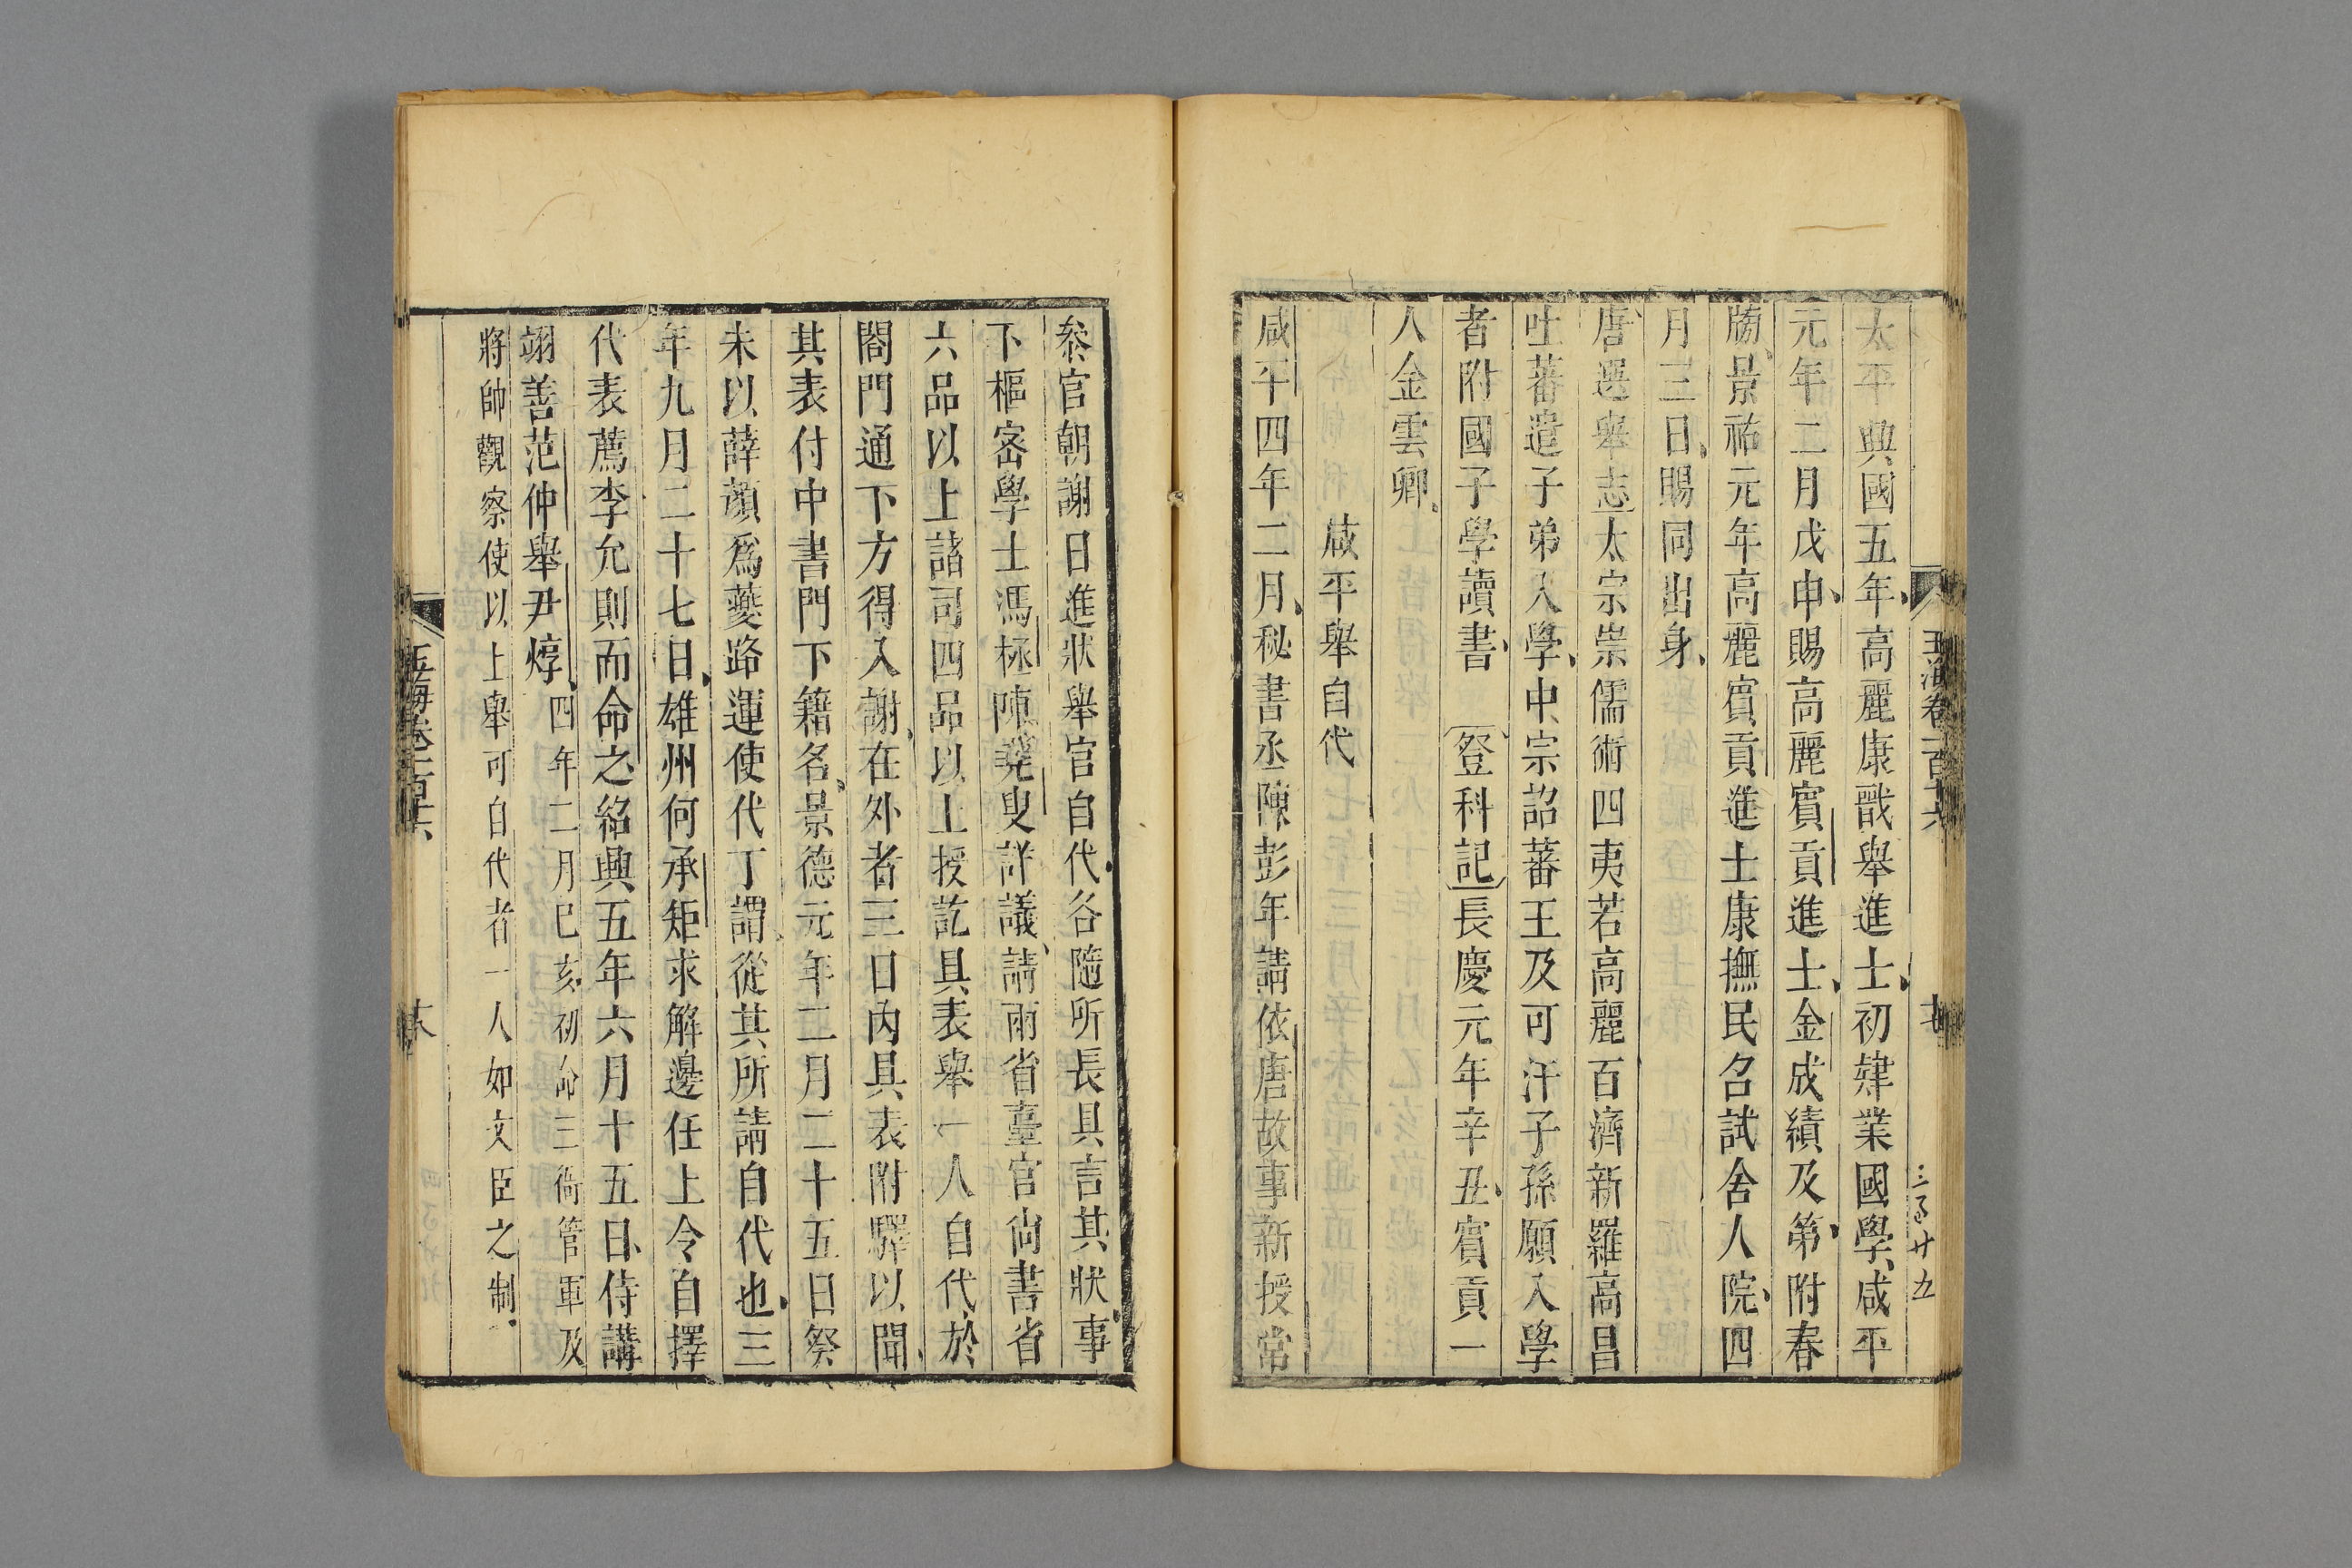 太平興國五年高麗康戩舉進士初肄業國學咸平
元年二月戊申賜高麗賓貢進士金成績及第附春
牓景祐元年高麗賓貢進士康撫民召試舍人院四
月三日賜同出身
唐選舉志太宗崇儒術四夷若高麗百濟新羅高昌
吐蕃遣子弟入學中宗詔蕃王及可汗子孫願入學
者附國子學讀書　登科記長慶元年辛丑賓貢一
人金雲卿
咸平舉自代
咸平四年二月秘書丞陳彭年請依唐故事新授常
玉海卷一百十六
十七
叅官朝謝日進狀舉官自代各隨所長具言其狀事
下樞密學士馮拯陳堯叟詳議請兩省臺官尚書省
六品以上諸司四品以上授訖具表舉一人自代於
閤門通下方得入謝在外者三日內具表附驛以聞
其表付中書門下籍名景德元年二月二十五日癸
未以薛顏爲夔路運使代丁謂從其所請自代也三
年九月二十七日雄州何承矩求解邊任上令自擇
代表薦李允則而命之紹興五年六月十五日侍講
翊善范仲舉尹焞四年二月已亥初命三衙管軍及
將帥觀察使以上舉可自代者一人如文臣之制
玉海卷一百十六
十八